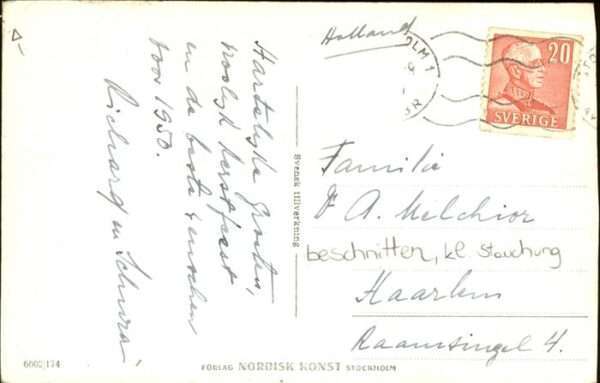 Hartelijke groeten,
vroolijk kerstfeest
en de beste wenschen
voor 1950.
Richard en
Holland
OLM 1
20
SVERIGE
Svensk tillverkning
Familie
A. Melchior
beschnitten, kl. Stauchung
Haarlem
Raamsingel 4.
FÖRLAG NORDISK KONST STOCKHOLM